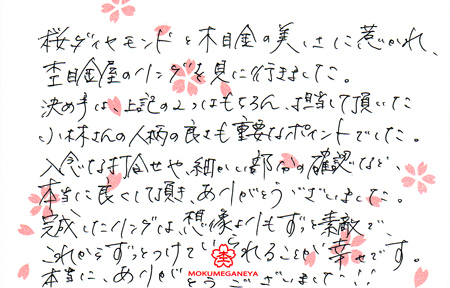 桜ダイヤモンドと木目金の美しさに惹かれ、
杢目金屋のリングを見に行きました。
決め手は上記の2つはもちろん、担当して頂いた
小林さんの人柄の良さも重要なポイントでした。
入念な打合せや、細かい部分の確認など、
本当に良くして頂き、ありがとうございました。
完成したリングは、想像よりもずっと素敵で、
これからずっとつけていられることが幸せです。
MOKUMEGANEYA
本当に、ありがとうございました!!